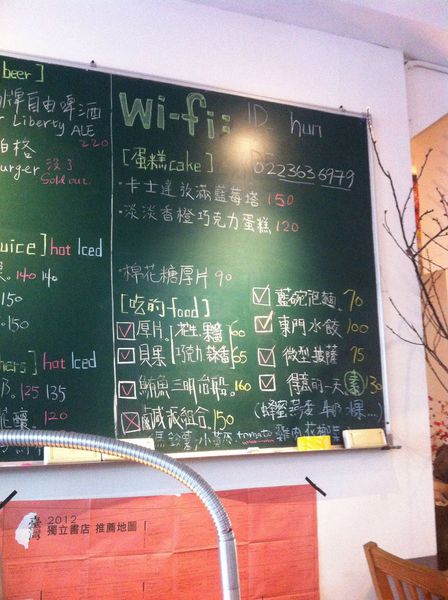 beer]
牌自由啤酒
Liberty ALE
220
格
urger 沒了
Sold out
uice] hot Iced
140 140
150
.150
hers] hot Iced
.125 135
120
Wi-fi: ID hun
0223636979
[蛋糕cake]
·卡士達放滿藍莓塔 150
·淡淡香橙巧克力蛋糕 120
·棉花糖厚片 90
[吃的food]
厚片 花生 果醬 60
貝果 65
鮪魚三明治船 .160
鹹鹹組合 150
tomato
泡麵 70
東門水餃 100
微型披薩 75
得意的一天 素 130
2012
臺灣
獨立書店 推薦地圖